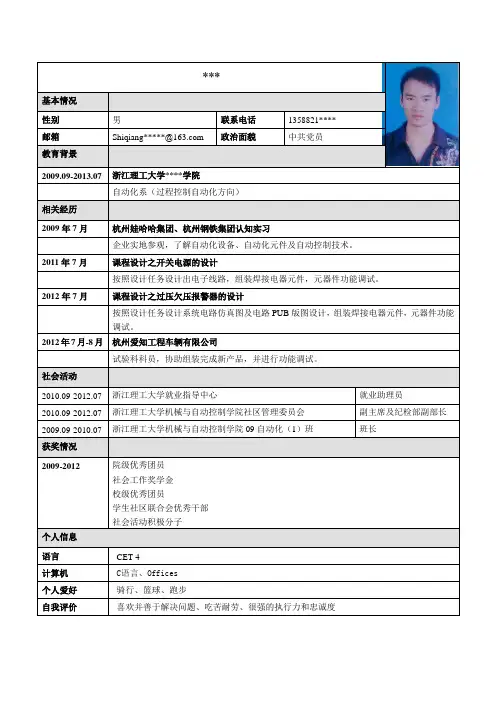 ***
基本情况
性别 男 联系电话 1358821****
邮箱 Shiqiang*****@163.com 政治面貌 中共党员
教育背景
2009.09-2013.07 浙江理工大学****学院
自动化系（过程控制自动化方向）
相关经历
2009 年 7 月 杭州娃哈哈集团、杭州钢铁集团认知实习
企业实地参观，了解自动化设备、自动化元件及自动控制技术。
2011 年 7 月 课程设计之开关电源的设计
按照设计任务设计出电子线路，组装焊接电器元件，元器件功能调试。
2012 年 7 月 课程设计之过压欠压报警器的设计
按照设计任务设计系统电路仿真图及电路 PUB 版图设计，组装焊接电器元件，元器件功能
调试。
2012 年 7 月-8 月 杭州爱知工程车辆有限公司
试验科科员，协助组装完成新产品，并进行功能调试。
社会活动
2010.09-2012.07 浙江理工大学就业指导中心 就业助理员
2010.09-2012.07 浙江理工大学机械与自动控制学院社区管理委员会 副主席及纪检部副部长
2009.09-2010.07 浙江理工大学机械与自动控制学院 09 自动化（1）班 班长
获奖情况
2009-2012 院级优秀团员
社会工作奖学金
校级优秀团员
学生社区联合会优秀干部
社会活动积极分子
个人信息
语言 CET-4
计算机 C语言、Offices
个人爱好 骑行、篮球、跑步
自我评价 喜欢并善于解决问题、吃苦耐劳、很强的执行力和忠诚度